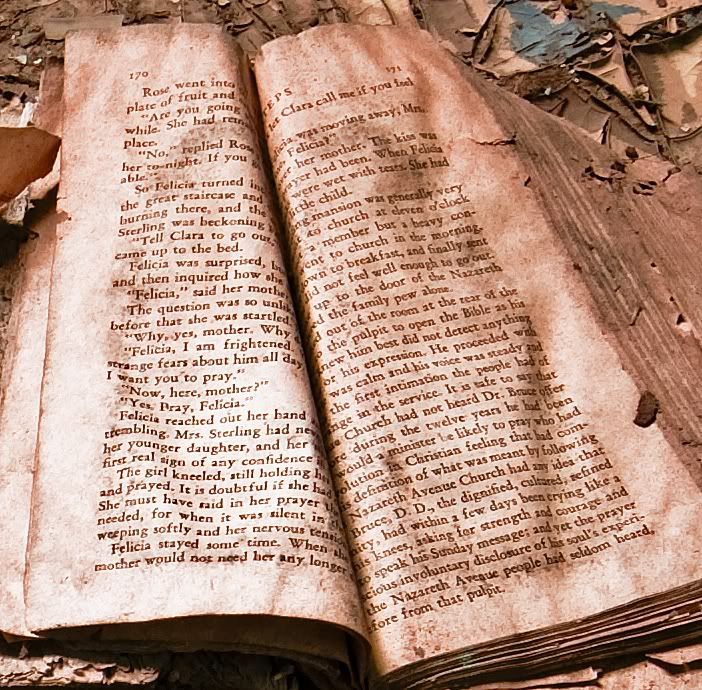 170
Rose went into
plate of fruit and
"Are you going
while. She had
place.
"No," replied Rose
her to-night. If you
able."
So Felicia turned
the great staircase and
burning there, and the
Sterling was beckoning
"Tell Clara to go out,
came up to the bed.
Felicia was surprised,
and then inquired how she
"Felicia," said her
The question was so
before that she was startled
"Why, yes, mother. Why
"Felicia, I am frightened
strange fears about him all day
I want you to pray."
"Now, here, mother?"
"Yes. Pray, Felicia."
Felicia reached out her hand
trembling. Mrs. Sterling had
her younger daughter, and her
first real sign of any confidence
The girl kneeled, still holding
and prayed. It is doubtful if she had
She must have said in her prayer
needed, for when it was silent in
weeping softly and her nervous
Felicia stayed some time. When
mother would not need her any longer
EPS 171
Clara call me if you feel
was moving away, Mrs.
Felicia?"
her mother. The kiss was
had been. When Felicia
were wet with tears. She had
child.
mansion was generally very
to church at eleven o'clock
a member but a heavy con-
to church in the morning.
to breakfast, and finally sent
not feel well enough to go out.
up to the door of the Nazareth
the family pew alone.
out of the room at the rear of the
the pulpit to open the Bible as his
him best did not detect anything
or his expression. He proceeded with
was calm and his voice was steady and
the first intimation the people had of
in the service. It is safe to say that
Church had not heard Dr. Bruce offer
during the twelve years he had been
a minister be likely to pray who had
in Christian feeling that had com-
definition of what was meant by following
Nazareth Avenue Church had any idea that
Bruce, D. D., the dignified, cultured, refined
had within a few days been crying like a
knees, asking for strength and courage and
to speak his Sunday message; and yet the prayer
involuntary disclosure of his soul's experi-
the Nazareth Avenue people had seldom heard,
from that pulpit.